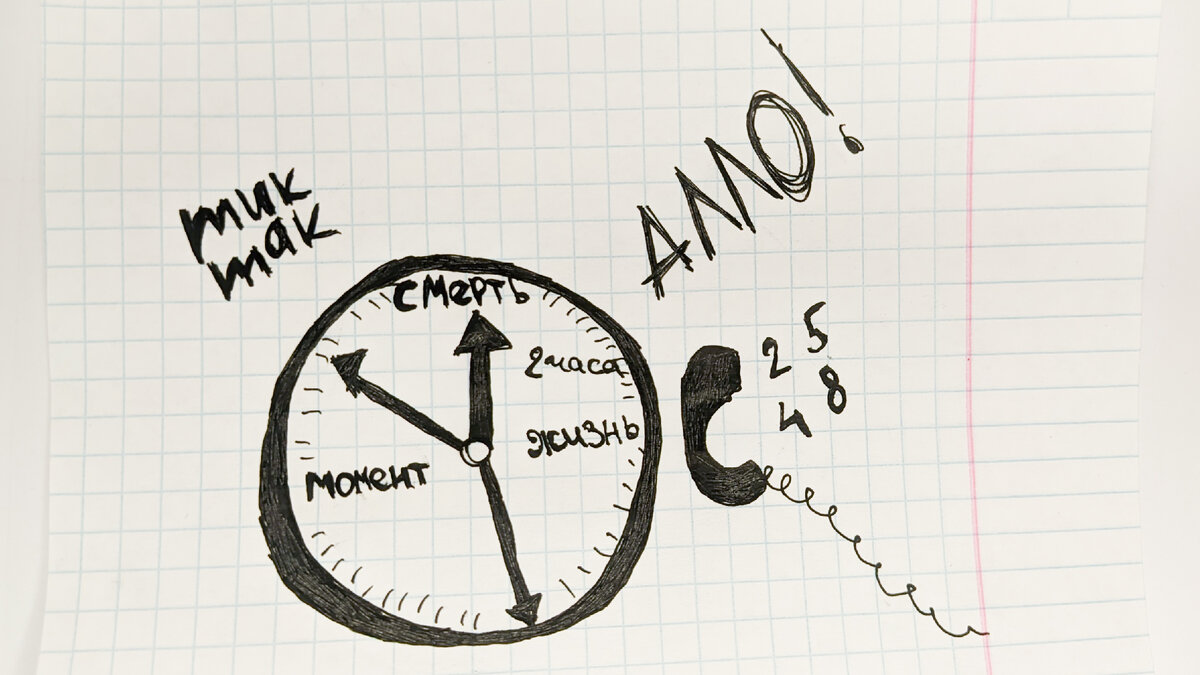 тик
так
АЛЛО!
смерть
2 часа
жизнь
момент
2 5
4 8